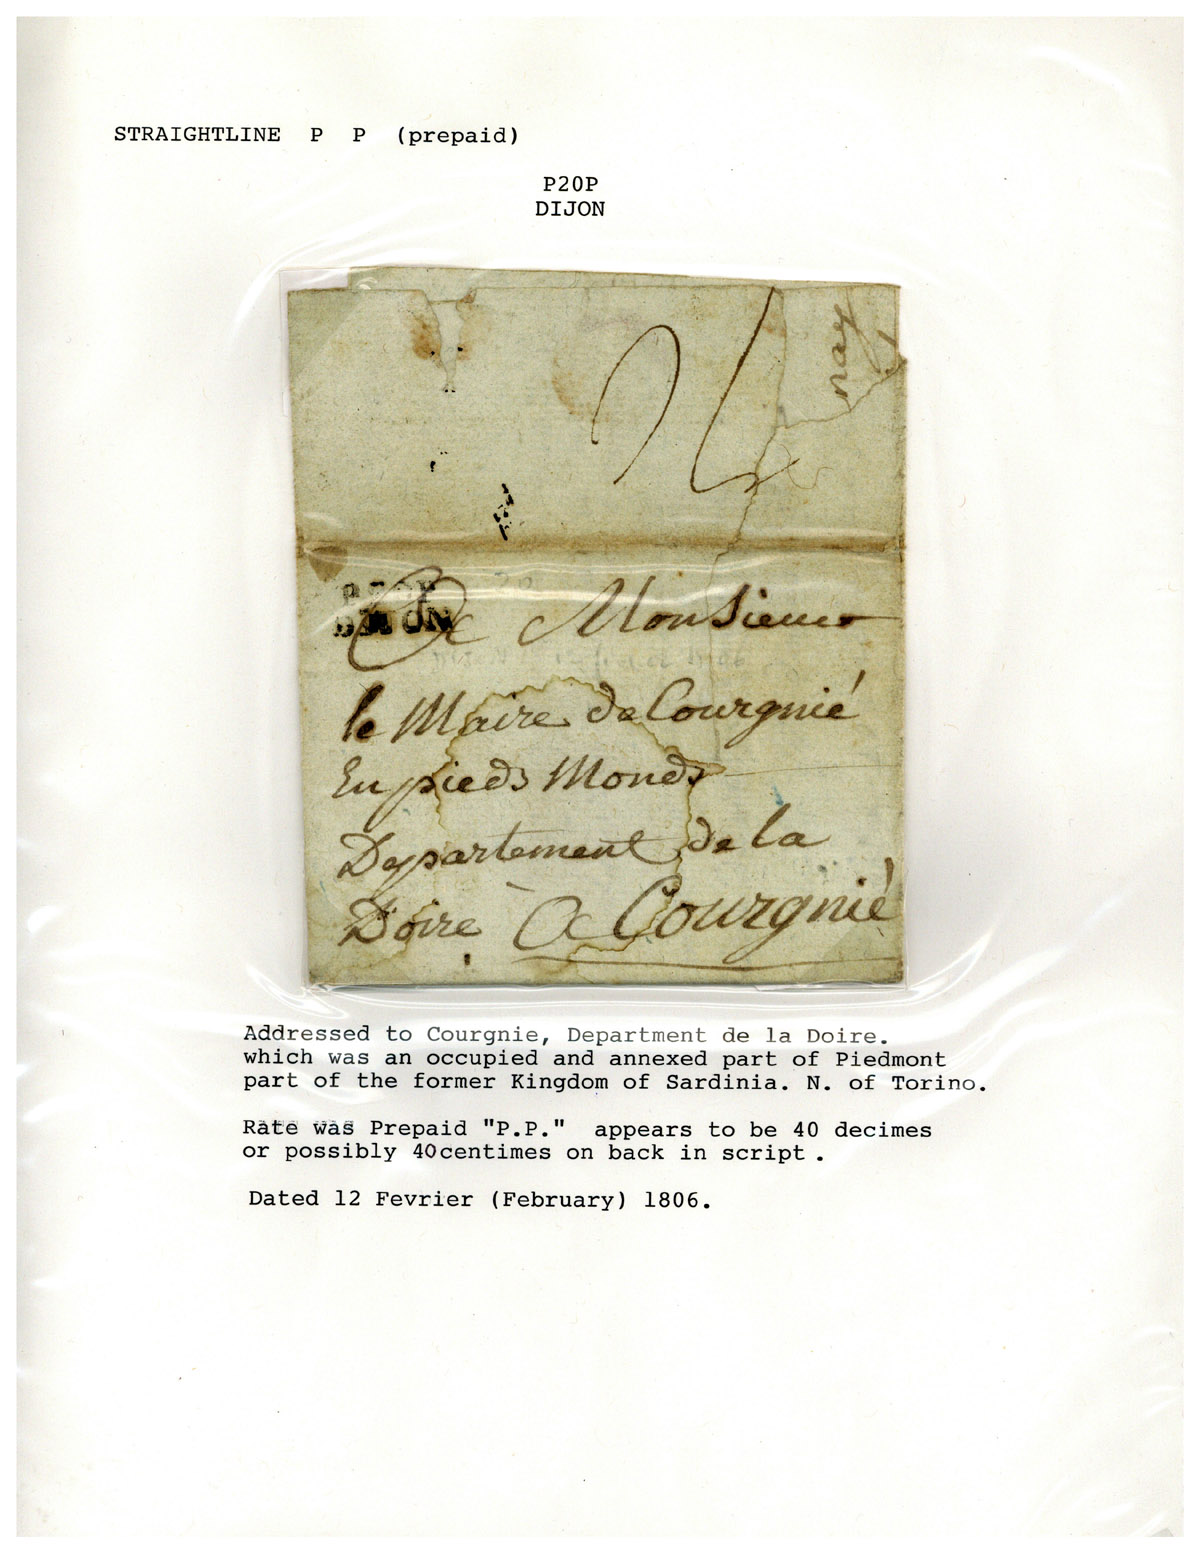 STRAIGHTLINE P P (prepaid)
P20P
DIJON
P20P
DIJON
A Monsieur
le Maire de Courgnié
En pieds Monds
Departement de la
Doire À Courgnié
Addressed to Courgnie, Department de la Doire.
which was an occupied and annexed part of Piedmont
part of the former Kingdom of Sardinia. N. of Torino.
Rate was Prepaid "P.P." appears to be 40 decimes
or possibly 40centimes on back in script .
Dated 12 Fevrier (February) 1806.